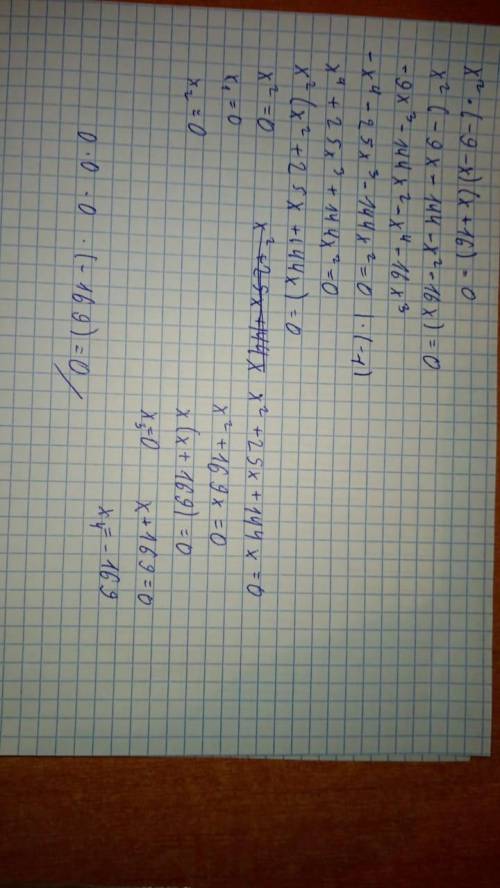 x² · (-9-x)(x+16) = 0
x² (-9x - 144 - x² - 16x) = 0
-9x³ - 144x² - x⁴ - 16x³
-x⁴ - 25x³ - 144x² = 0 | · (-1)
x⁴ + 25x³ + 144x² = 0
x² (x² + 25x + 144x) = 0
x² = 0 x² + 25x + 144x x² + 25x + 144x = 0
x₁ = 0 x² + 169x = 0
x₂ = 0 x(x+169) = 0
x₃=0 x+169=0
x₄=-169
0 · 0 · 0 · (-169) = 0